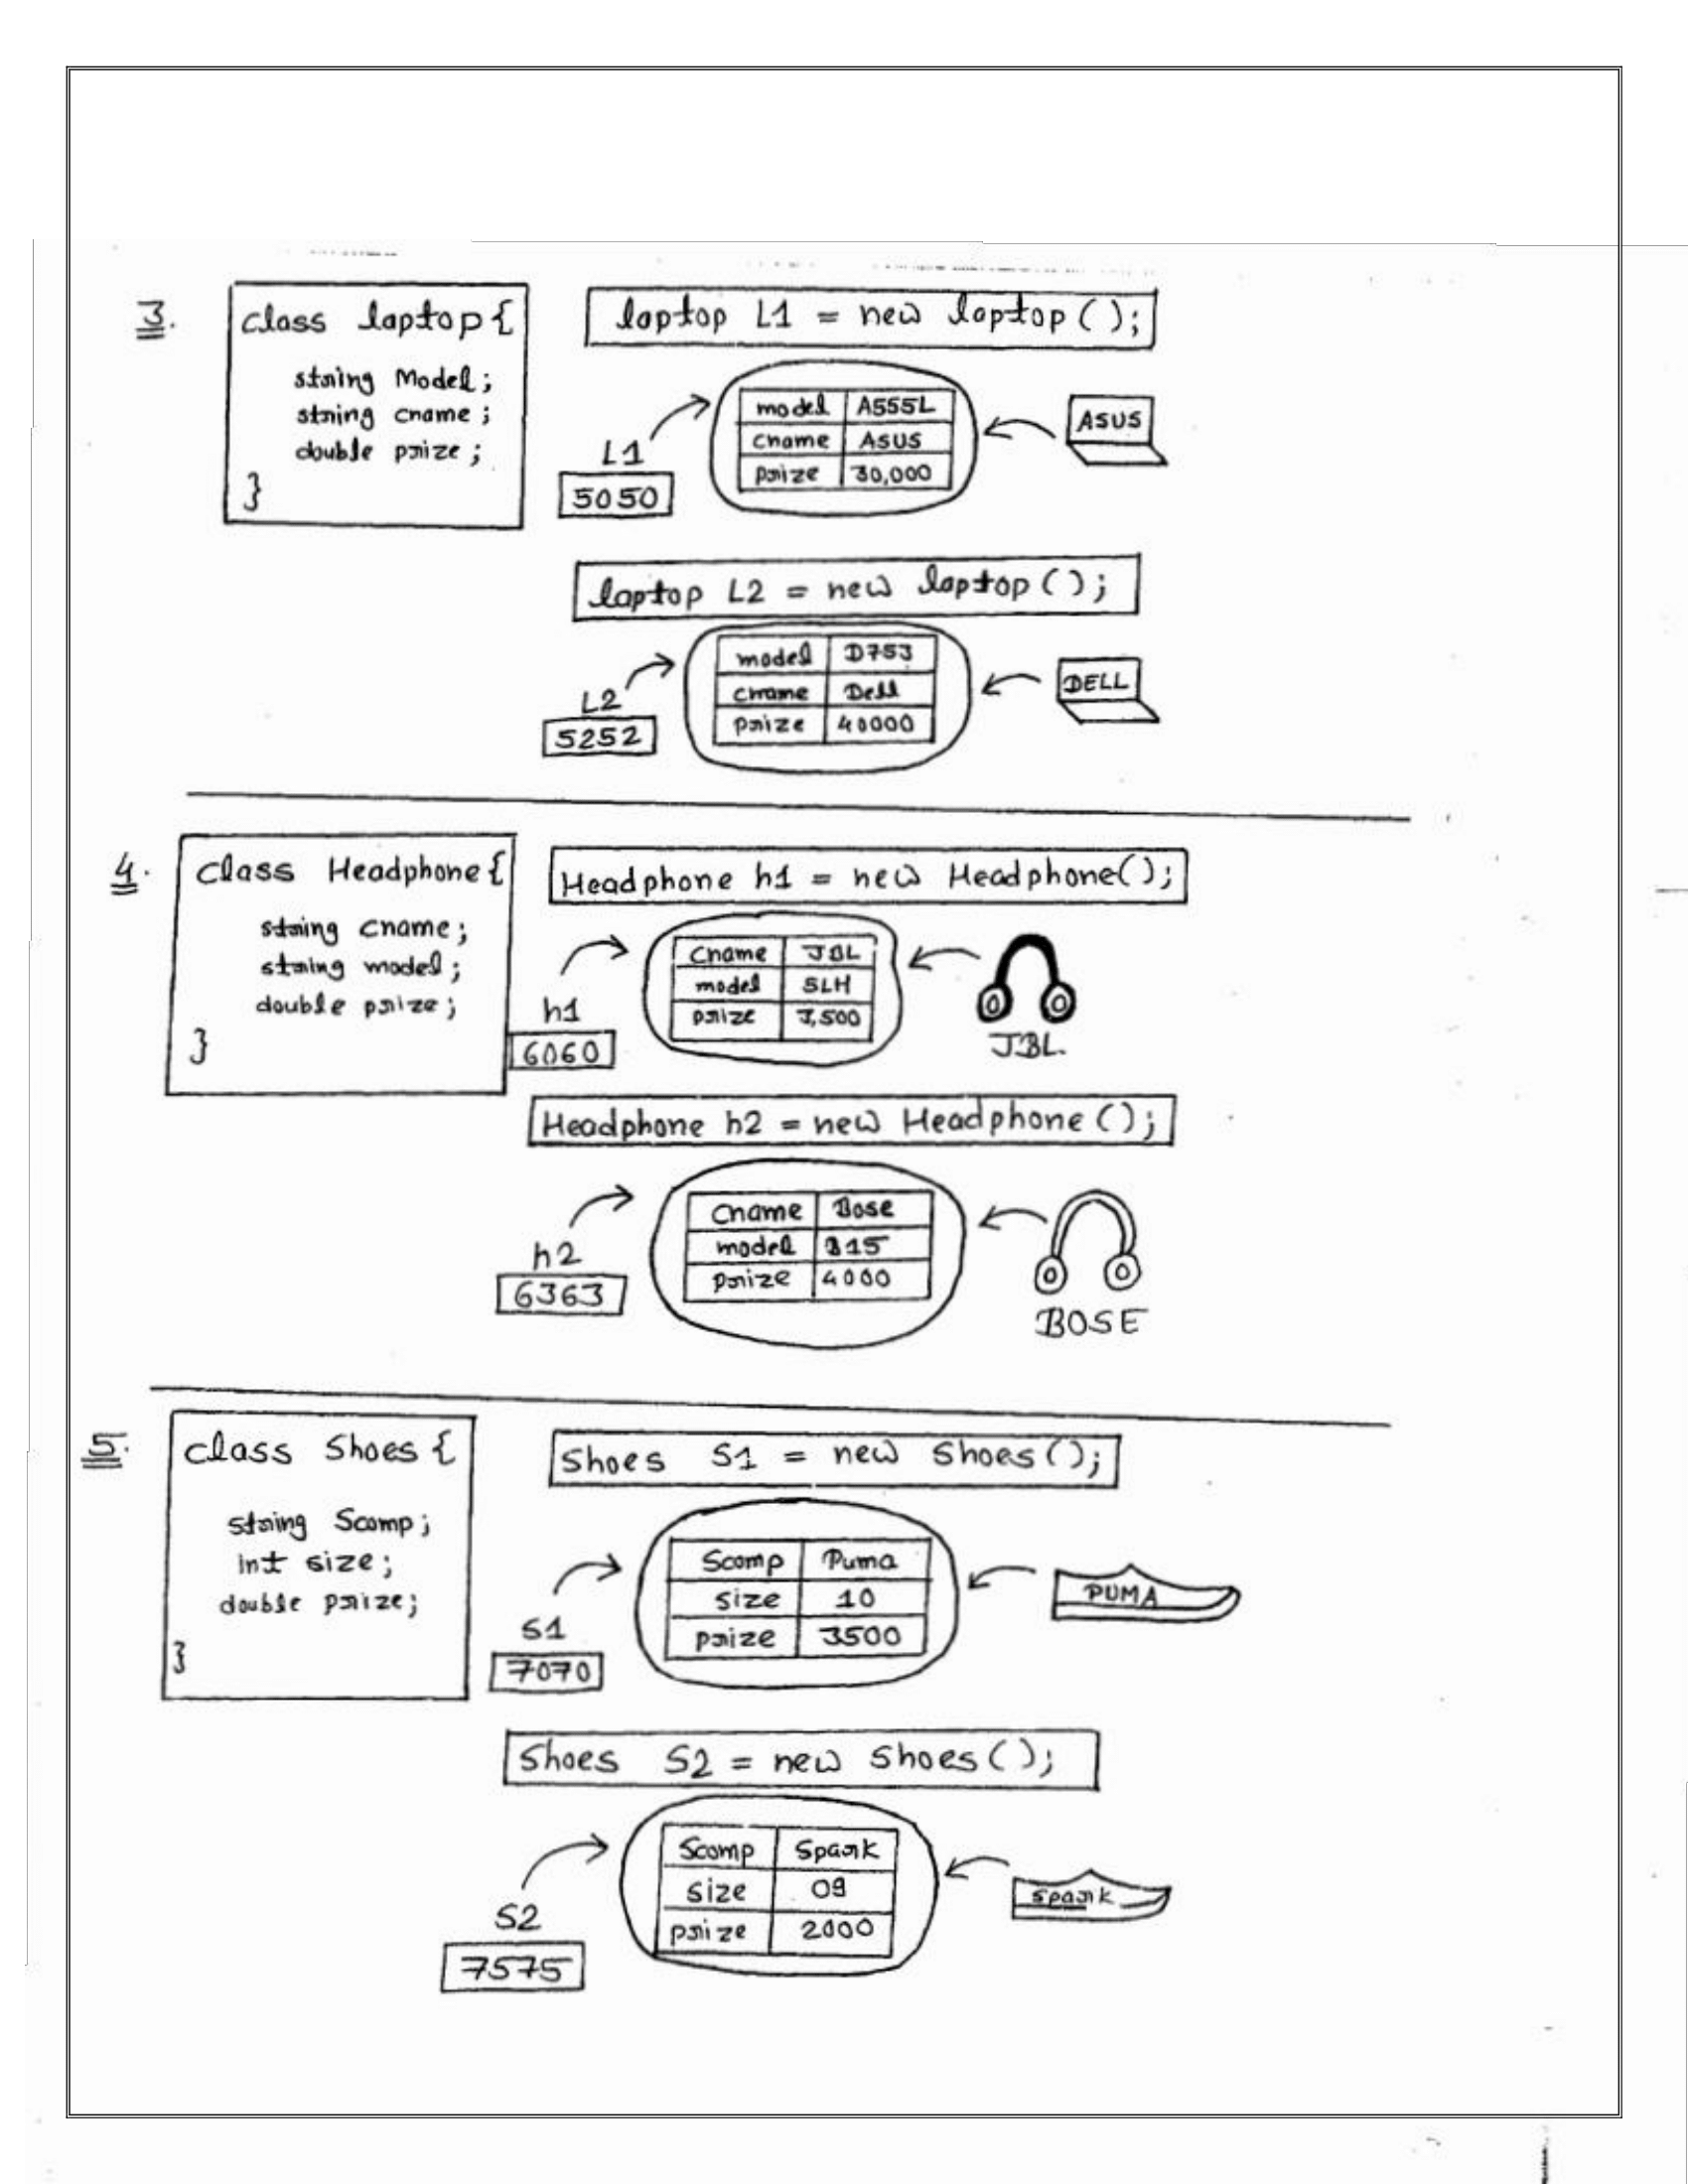 3.
class laptop {
string Model;
string cname;
double prize;
}
laptop L1 = new laptop();
model A555L
cname ASUS
prize 30,000
L1
5050
ASUS
laptop L2 = new laptop();
model D753
cname Dell
prize 40000
L2
5252
DELL
4.
class Headphone {
string cname;
string model;
double prize;
}
Headphone h1 = new Headphone();
Cname JBL
model SLH
prize 3,500
h1
6060
JBL.
Headphone h2 = new Headphone();
Cname Bose
model B15
prize 4000
h2
6363
BOSE
5.
class Shoes {
string Scomp;
int size;
double prize;
}
Shoes S1 = new Shoes();
Scomp Puma
size 10
prize 3500
S1
7070
PUMA
Shoes S2 = new Shoes();
Scomp Spark
size 09
prize 2000
S2
7575
Spark